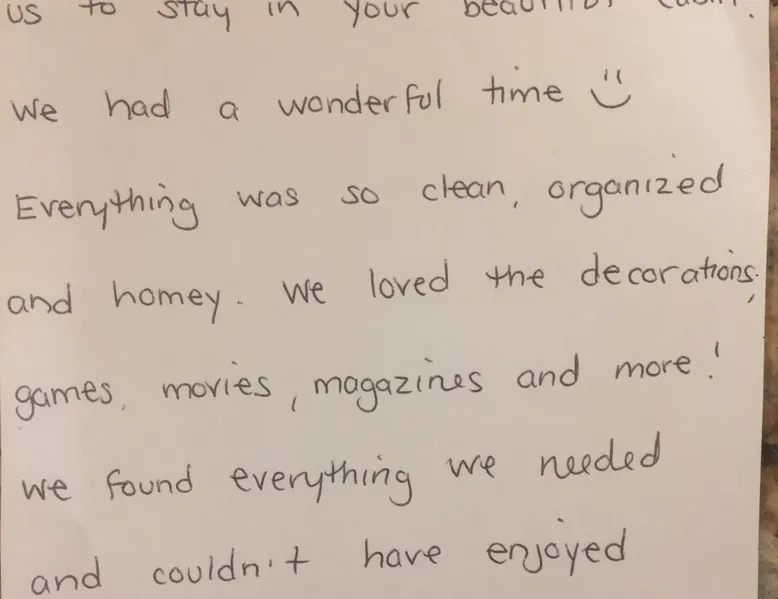 us to stay in your beautiful cabin.
We had a wonderful time
Everything was so clean, organized
and homey. We loved the decorations,
games, movies, magazines and more!
We found everything we needed
and couldn't have enjoyed